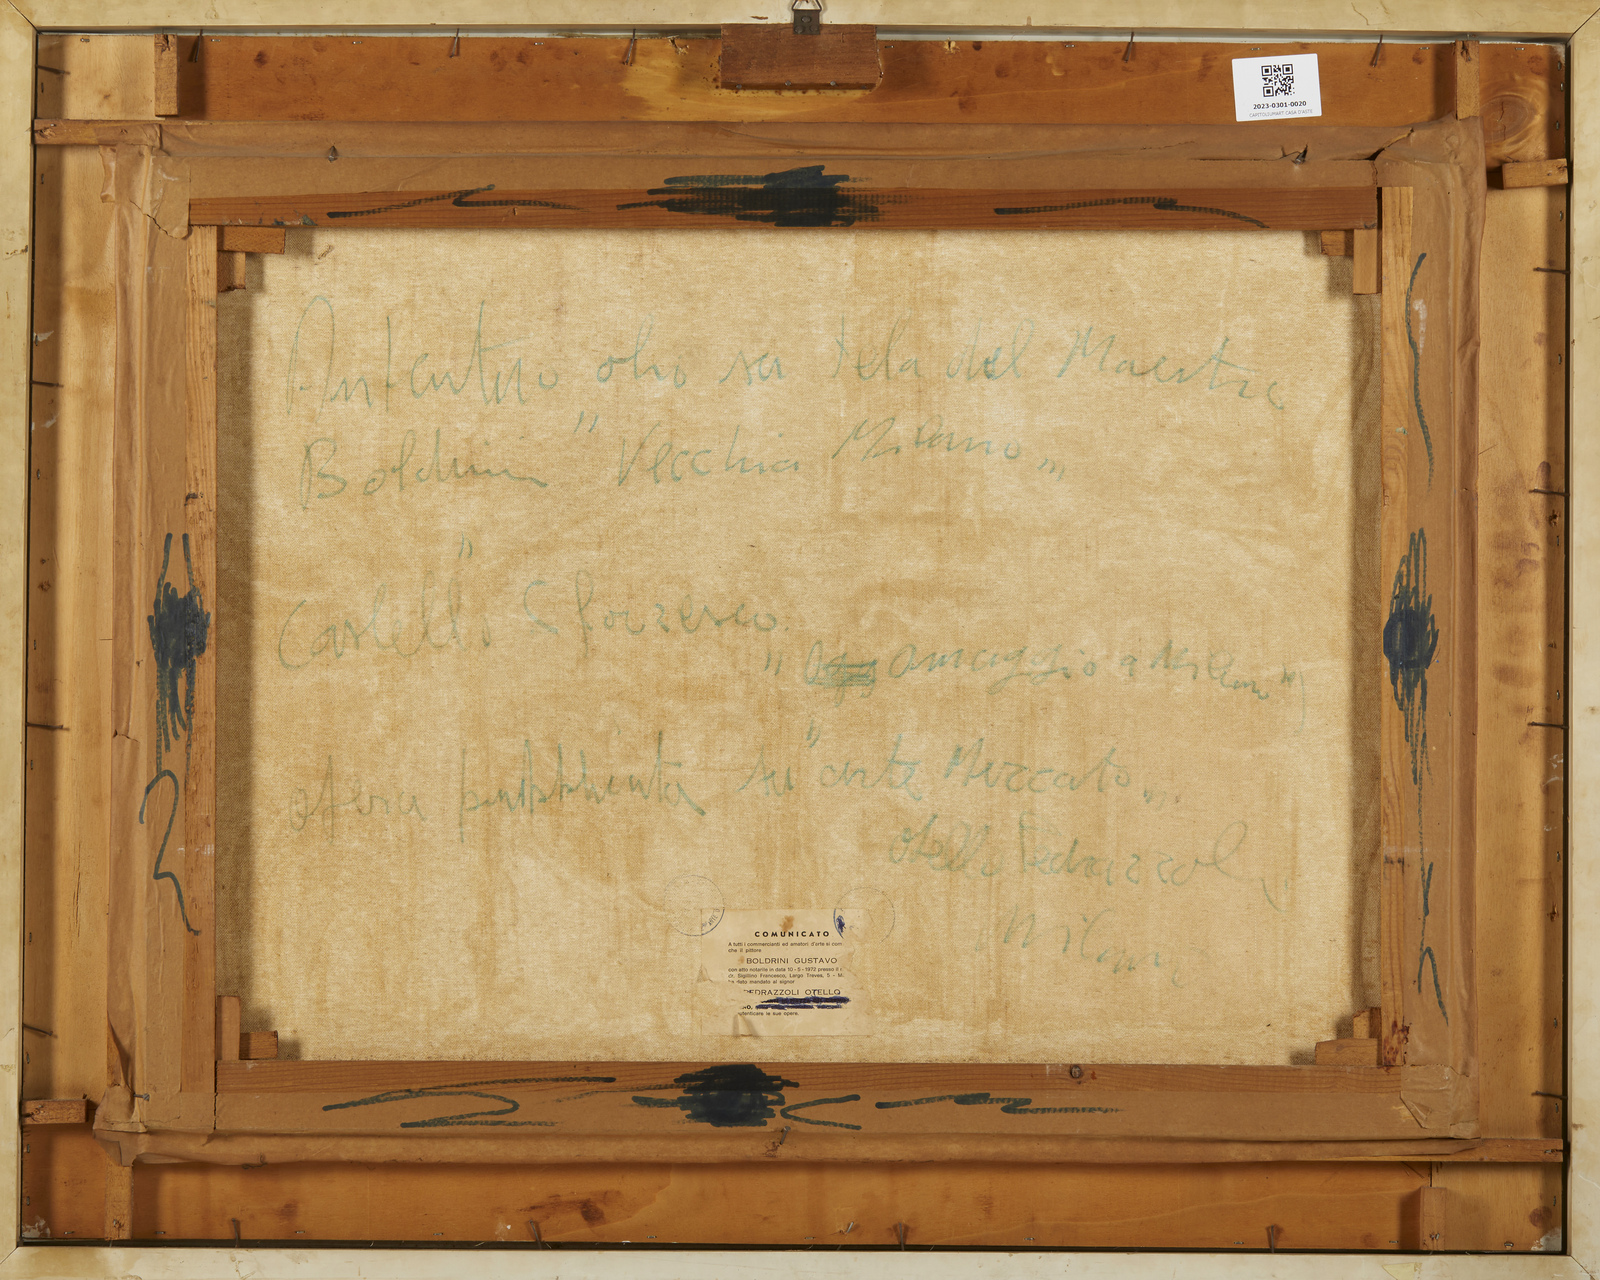 2023-0301-0020
CAPITOLIUMART CASA D'ASTE
Autentico olio su tela del Maestro
Boldrini "Vecchia Milano"
"Castello Sforzesco.
" omaggio a Milano")
opera pubblicata su "arte Mercato".
Otello Pedrazzoli
Milano
COMUNICATO
A tutti i commercianti ed amatori d'arte si com
che il pittore
BOLDRINI GUSTAVO
con atto notarile in data 10-5-1972 presso il
dr. Sigillino Francesco, Largo Treves, 5 - M
ha dato mandato al signor
PEDRAZZOLI OTELLO
autenticare le sue opere.